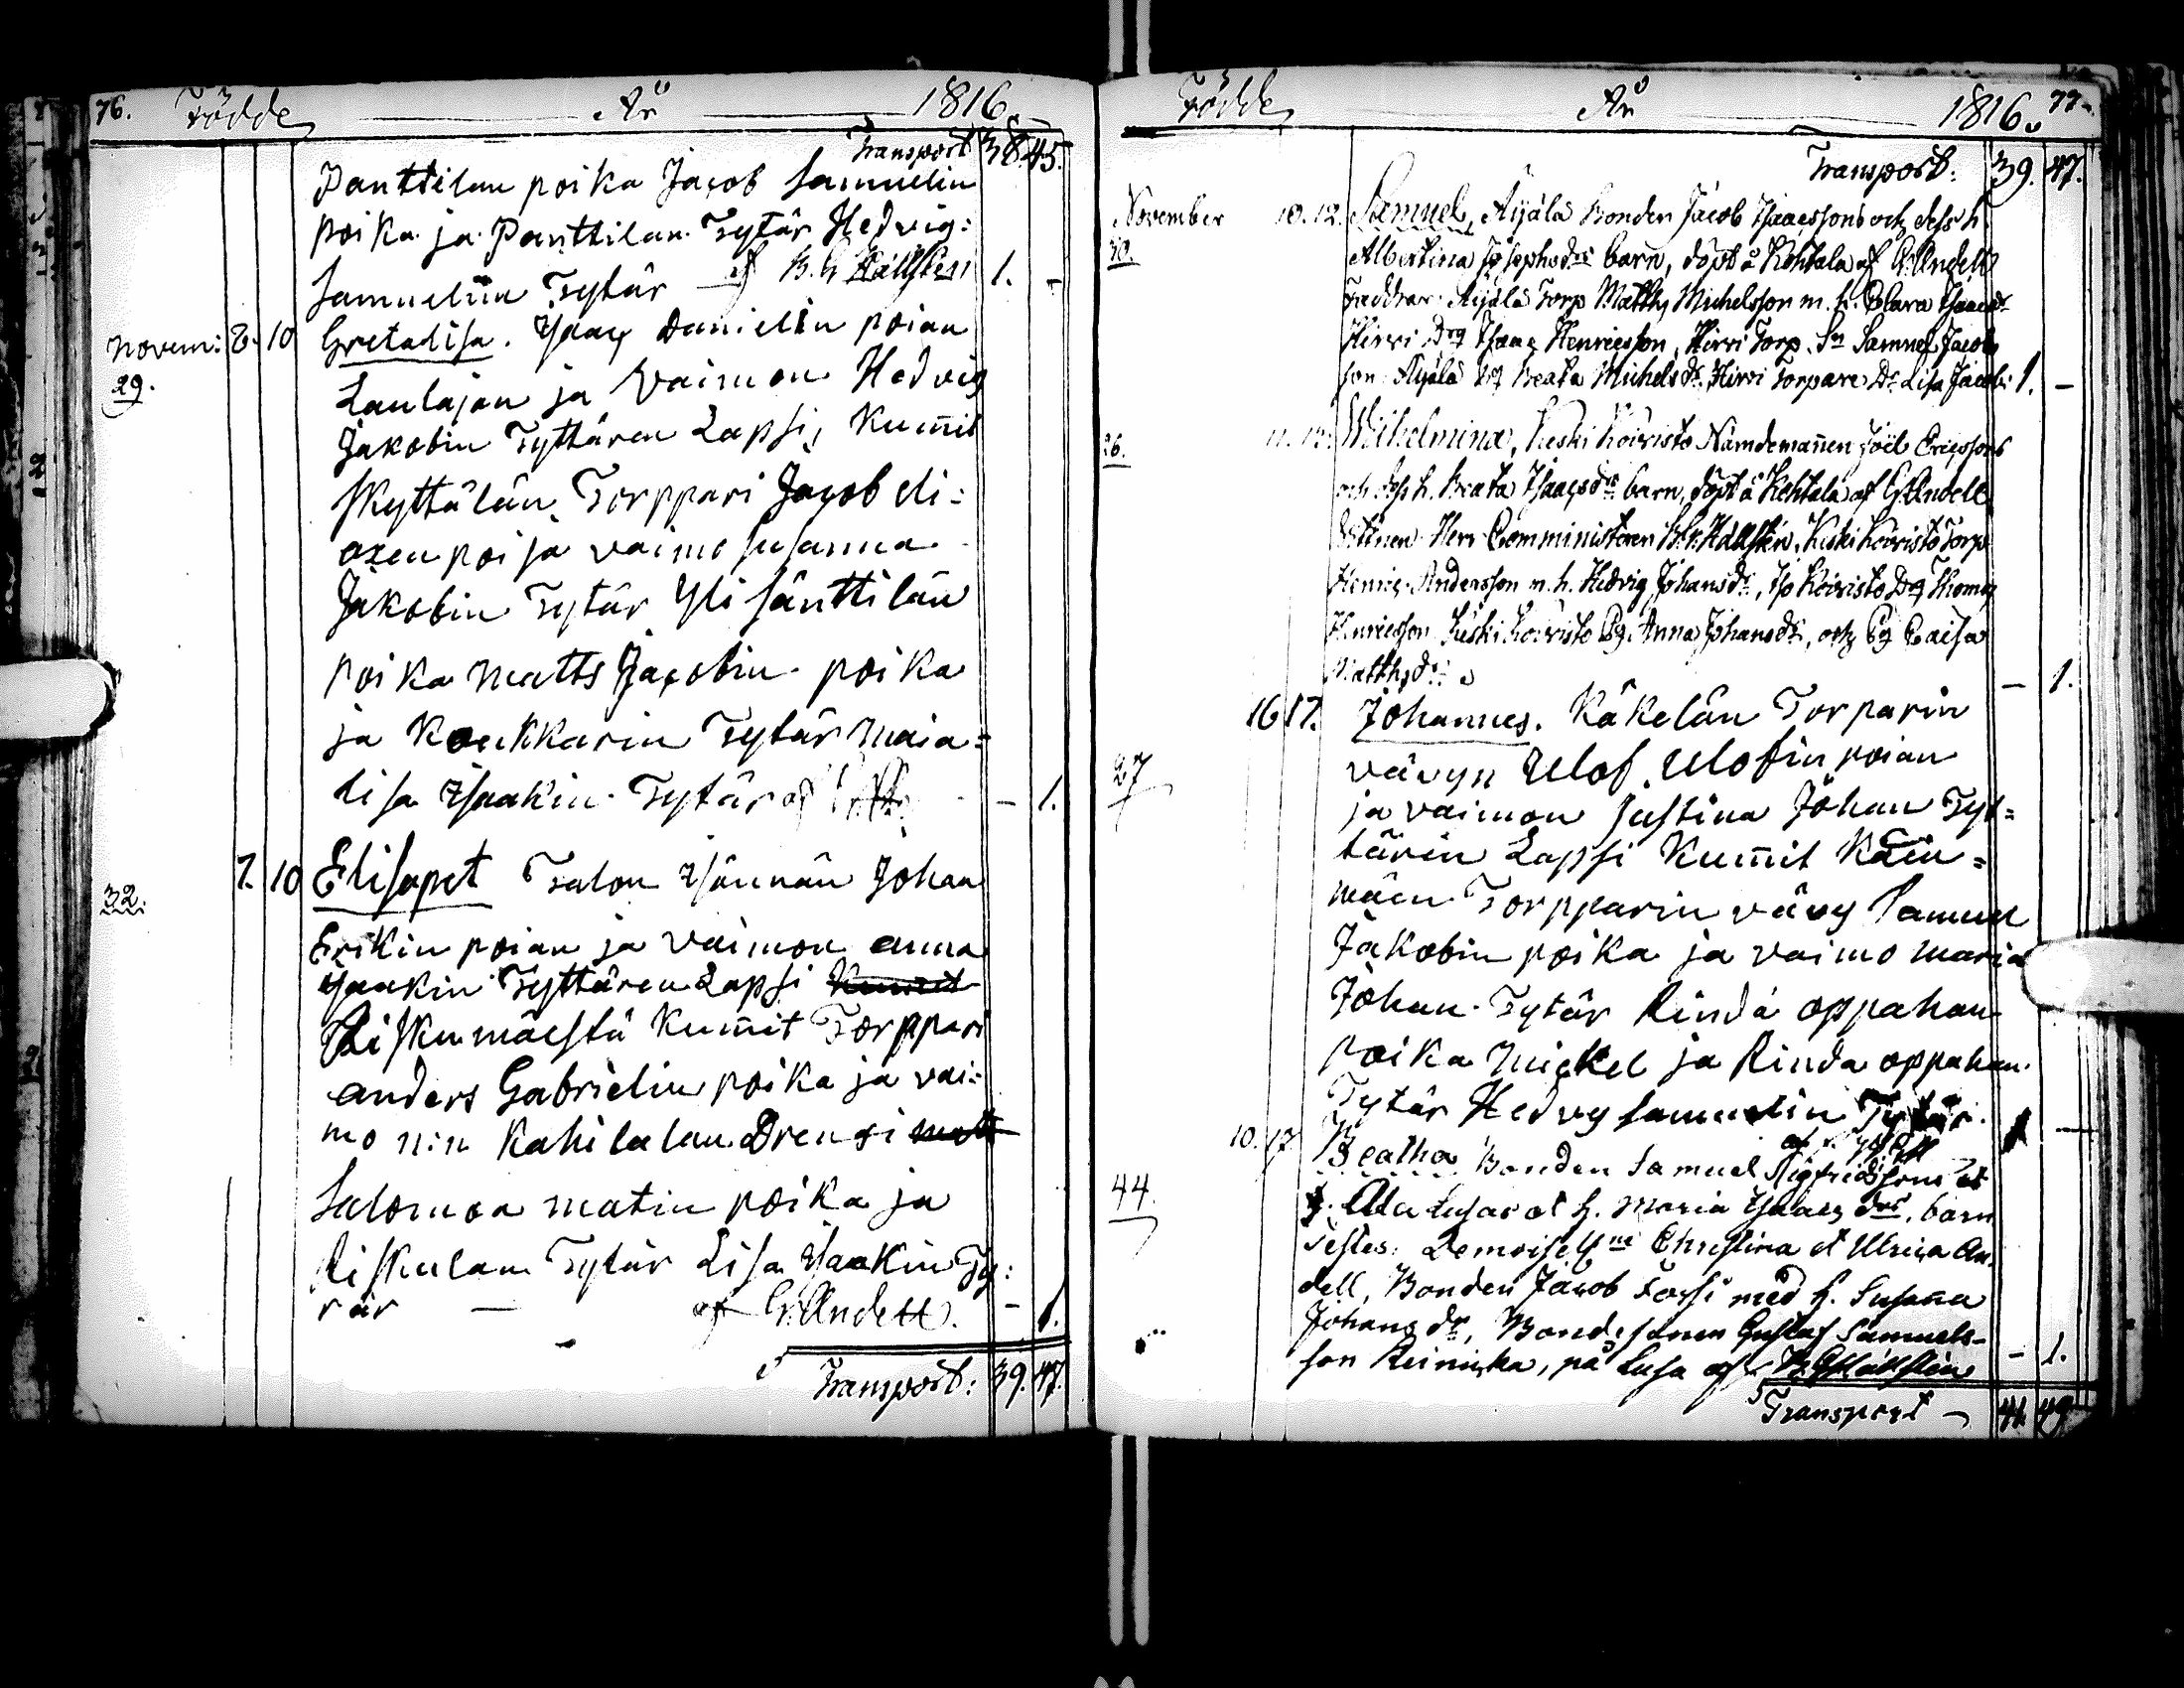 76. Födde År 1816.
Transport 38. 45.
Panttilan poika Jacob Samuelin
poika ja Panttilan Tytär Hedvig:
Samuelin Tytär af B. G. Hällsten 1. -
Novem: 2. 10 Gretalisa. Isaac Danielin poian
29. Laulajan ja Vaimon Hedvig
Jakobin Tyttären Lapsi, Kum̄it
Kyttälän Torppari Jacob Eli=
axen poi ja vaimo Susanna
Jakobin Tytär Yli Sänttilän
poika Matts Jacobin poika
ja Koukkarin Tytär Maia=
lisa Isaakin Tytär af - 1.
32. 7. 10 Elisapet Talon Isännän Johan
Erikin poian ja Vaimon anna
Isaakin Tyttären Lapsi Kummit
Riskumäestä Kum̄it Torppari
anders Gabrielin poika ja vai=
mo n:n Kahilalan Drengi matt
Salomon matin poika ja
Riskulan Tytär Lisa Isaakin Ty:
tär — af G. Andell. - 1.
Transport: 39. 47.
Födde År 1816. 77.
Transport: 39. 47.
November 10. 12. Samuel, Äijälä Bonden Jacob Isaacssons och dess h.
40. Albertina Josephsdrs barn, döpt å Kohtala af G. Andell
Faddrar: Äijälä Torp. Matths Michelsson m. h. Clara Isaacsdr
Hirvi Drg Isaac Henricsson, Hirvi Torp. Sn Samuel Jacobs
son Äijälä Pg Beata Michelsdr. Hirvi Torpare Dr Lisa Jacobs 1. -
26. 11. Wilhelmina, Keski Koivisto Nämdemannen Joël Ericssons
och dess h. Beata Isaacsdrs barn, döpt å Kohtala af G. Andell
Vittnen Herr Comministeren B. G. Hällstén, Keski Koivisto Torp
Henric Andersson m. h. Hedvig Johansdr, Iso Koivisto Drg Thomas
Henricsson Keski Koivisto Pg. Anna Johansdr, och Pg Caisa
Matthsdr. - 1.
16 17. Johannes. Käkelän Torparin
27 vävyn Ulof Ulofin poian
ja vaimon Justina Johan Tyt=
tärin Lapsi Kum̄it Koiu=
mäen Torpparin vävy Samuel
Jakobin poika ja vaimo maria
Johan Tytär Rinda oppahan
poika Mickel ja Rinda oppahan
Tytär Hedvig Samuelin Tytär. 1 —
10. 17 Beatha Bonden Samuel Sigfridssons
44 Ala Lusas et h. Maria Isaacs drs. barn
Testes: Demoisellne Christina et Ulrica An=
dell, Bonden Jacob Forssi med h. Susanna
Johans dr, Bondesonen Gustaf Samuels=
son Reinicka, på Lusa af B. G. Hällstén - 1.
Transport 41. 49